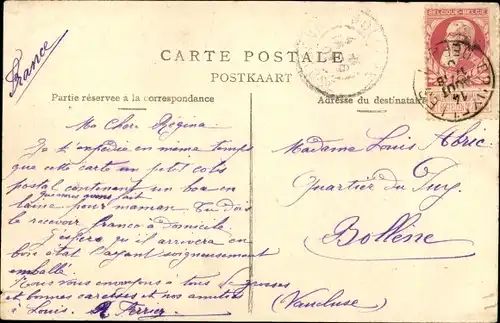 France
BELGIQUE-BELGIE
CARTE POSTALE
POSTKAART
Partie réservée à la correspondance
Adresse du destinataire
Ma Chère Régina
Je t'expédie en même temps
que cette carte un petit colis
postal contenant un boa en
que nous avons fait
laine pour maman. Tu dois
le recevoir franco à domicile
J'espère qu'il arrivera en
bon état l'ayant soigneusement
emballé
Nous vous envoyons à tous de grosses
et bonnes caresses et nos amitiés
à Louis.
Madame Louis Abric
Quartier du Puy
Bollène
(Vaucluse)